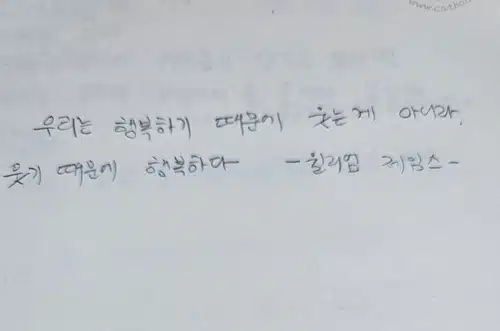 우리는 행복하기 때문에 웃는게 아니라,
웃기 때문에 행복하다 -윌리엄 제임스-